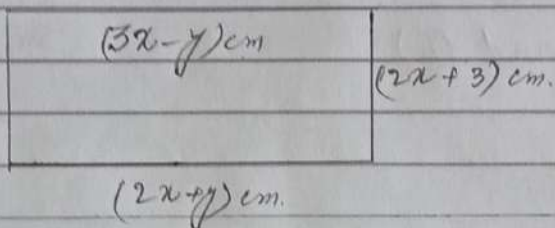 (3x-y)cm
(2x+3) cm.
(2x+y) cm.